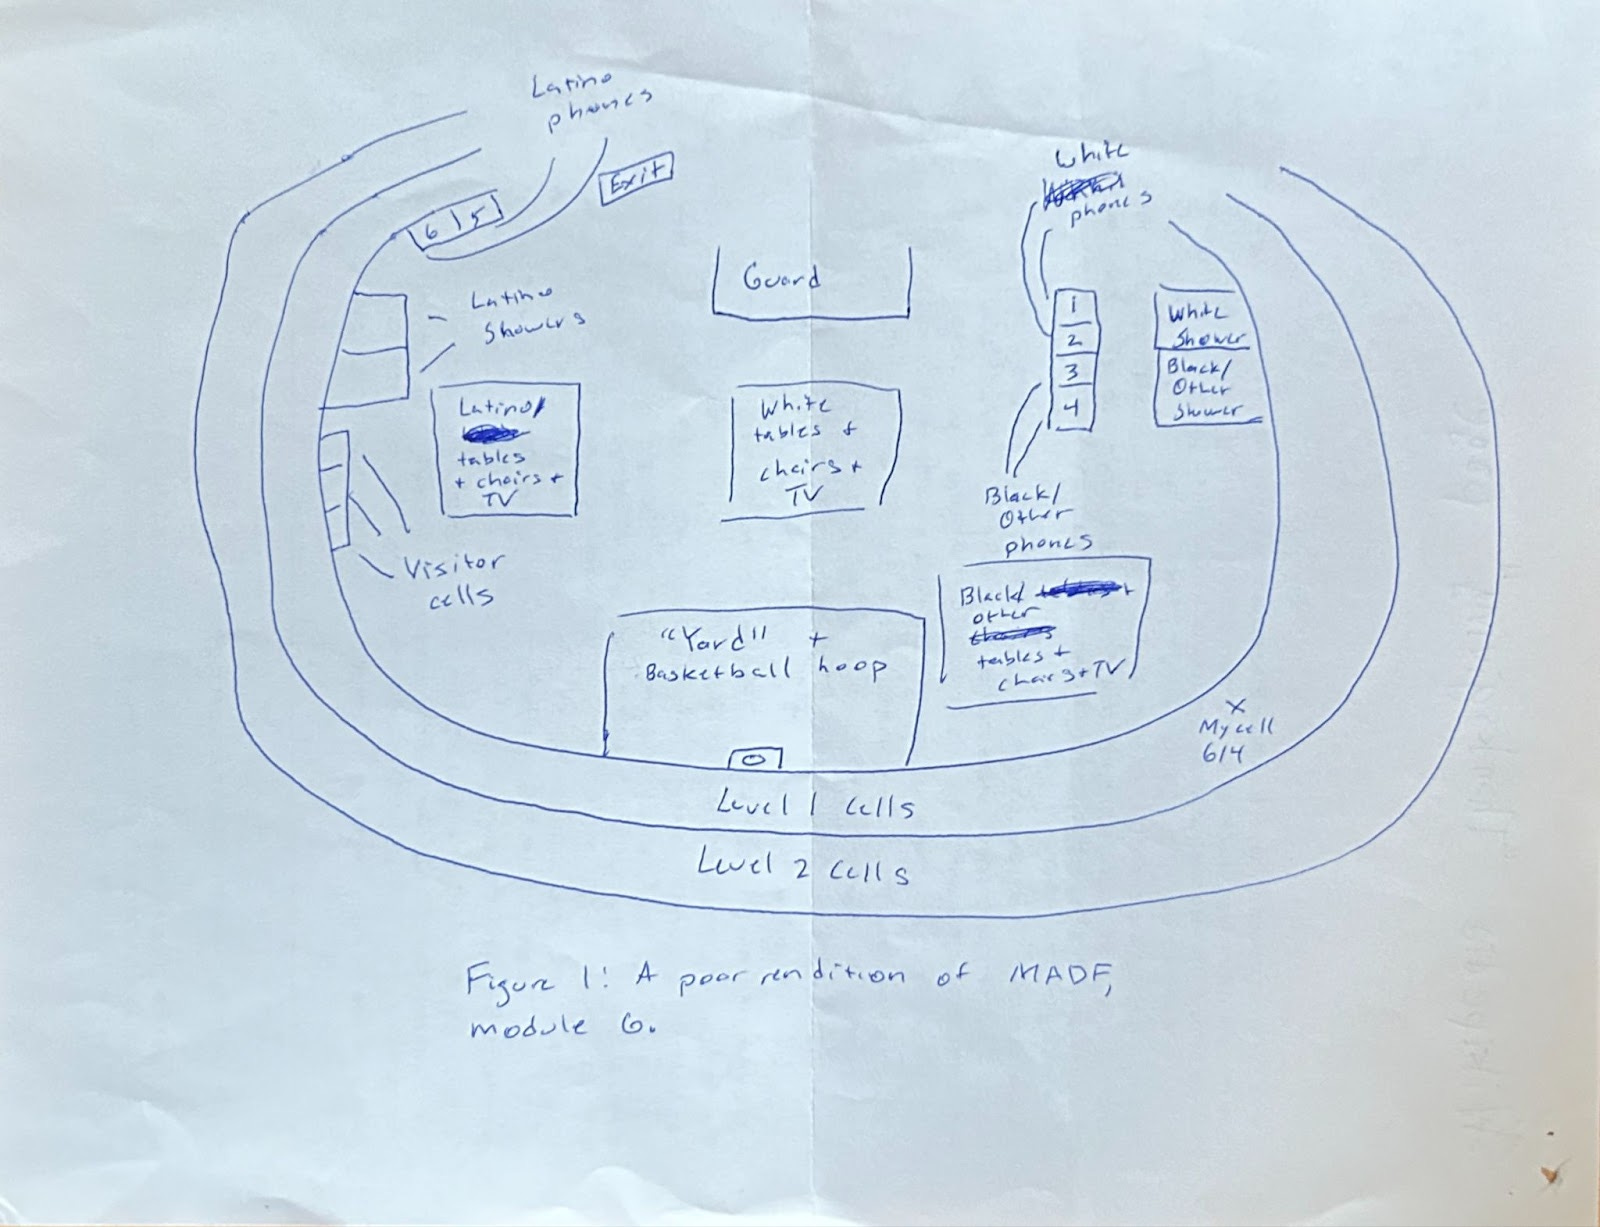 Latino
phones
Exit
6 5
White
phones
Guard
Latino
showers
1
2
3
4
White
Shower
Black/
Other
Shower
Latino/
tables
+ chairs +
TV
White
tables +
chairs +
TV
Black/
Other
phones
Visitor
cells
Black/ +
other
tables +
chairs + TV
"Yard" +
Basketball hoop
X
My cell
614
Level 1 cells
Level 2 cells
Figure 1: A poor rendition of MADF,
module 6.